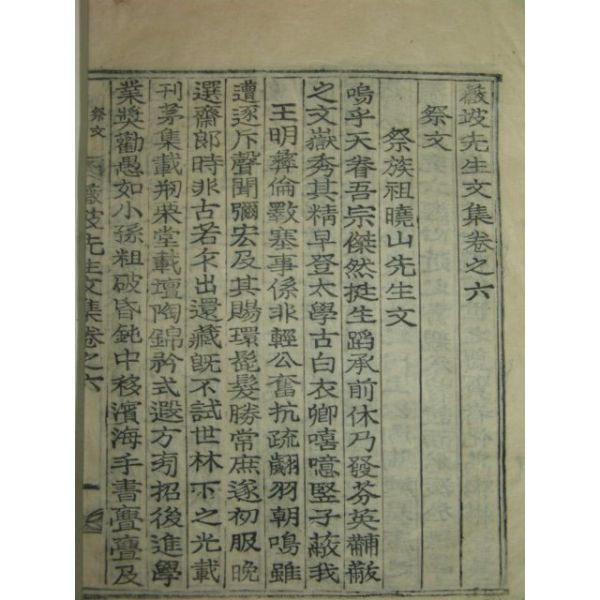 薇坡先生文集卷之六
祭文
祭族祖曉山先生文
嗚乎天眷吾宗傑然挺生蹈承前休乃發芬英黼黻
之文嶽秀其精早登太學古白衣卿嘻噫竪子蔽我
王明彝倫斁塞事係非輕公奮抗疏翽羽朝鳴雖
遭逐斥聲聞彌宏及其賜環髭髮勝常庶遂初服晚
選齋郎時非古若不出還藏旣不試世林下之光載
刊茅集載刱栄堂載壇陶錦衿式遐方旁招後進學
業奬勸愚如小孫粗破昏鈍中移濱海手書亹亹及
祭文
薇坡先生文集卷之六
一